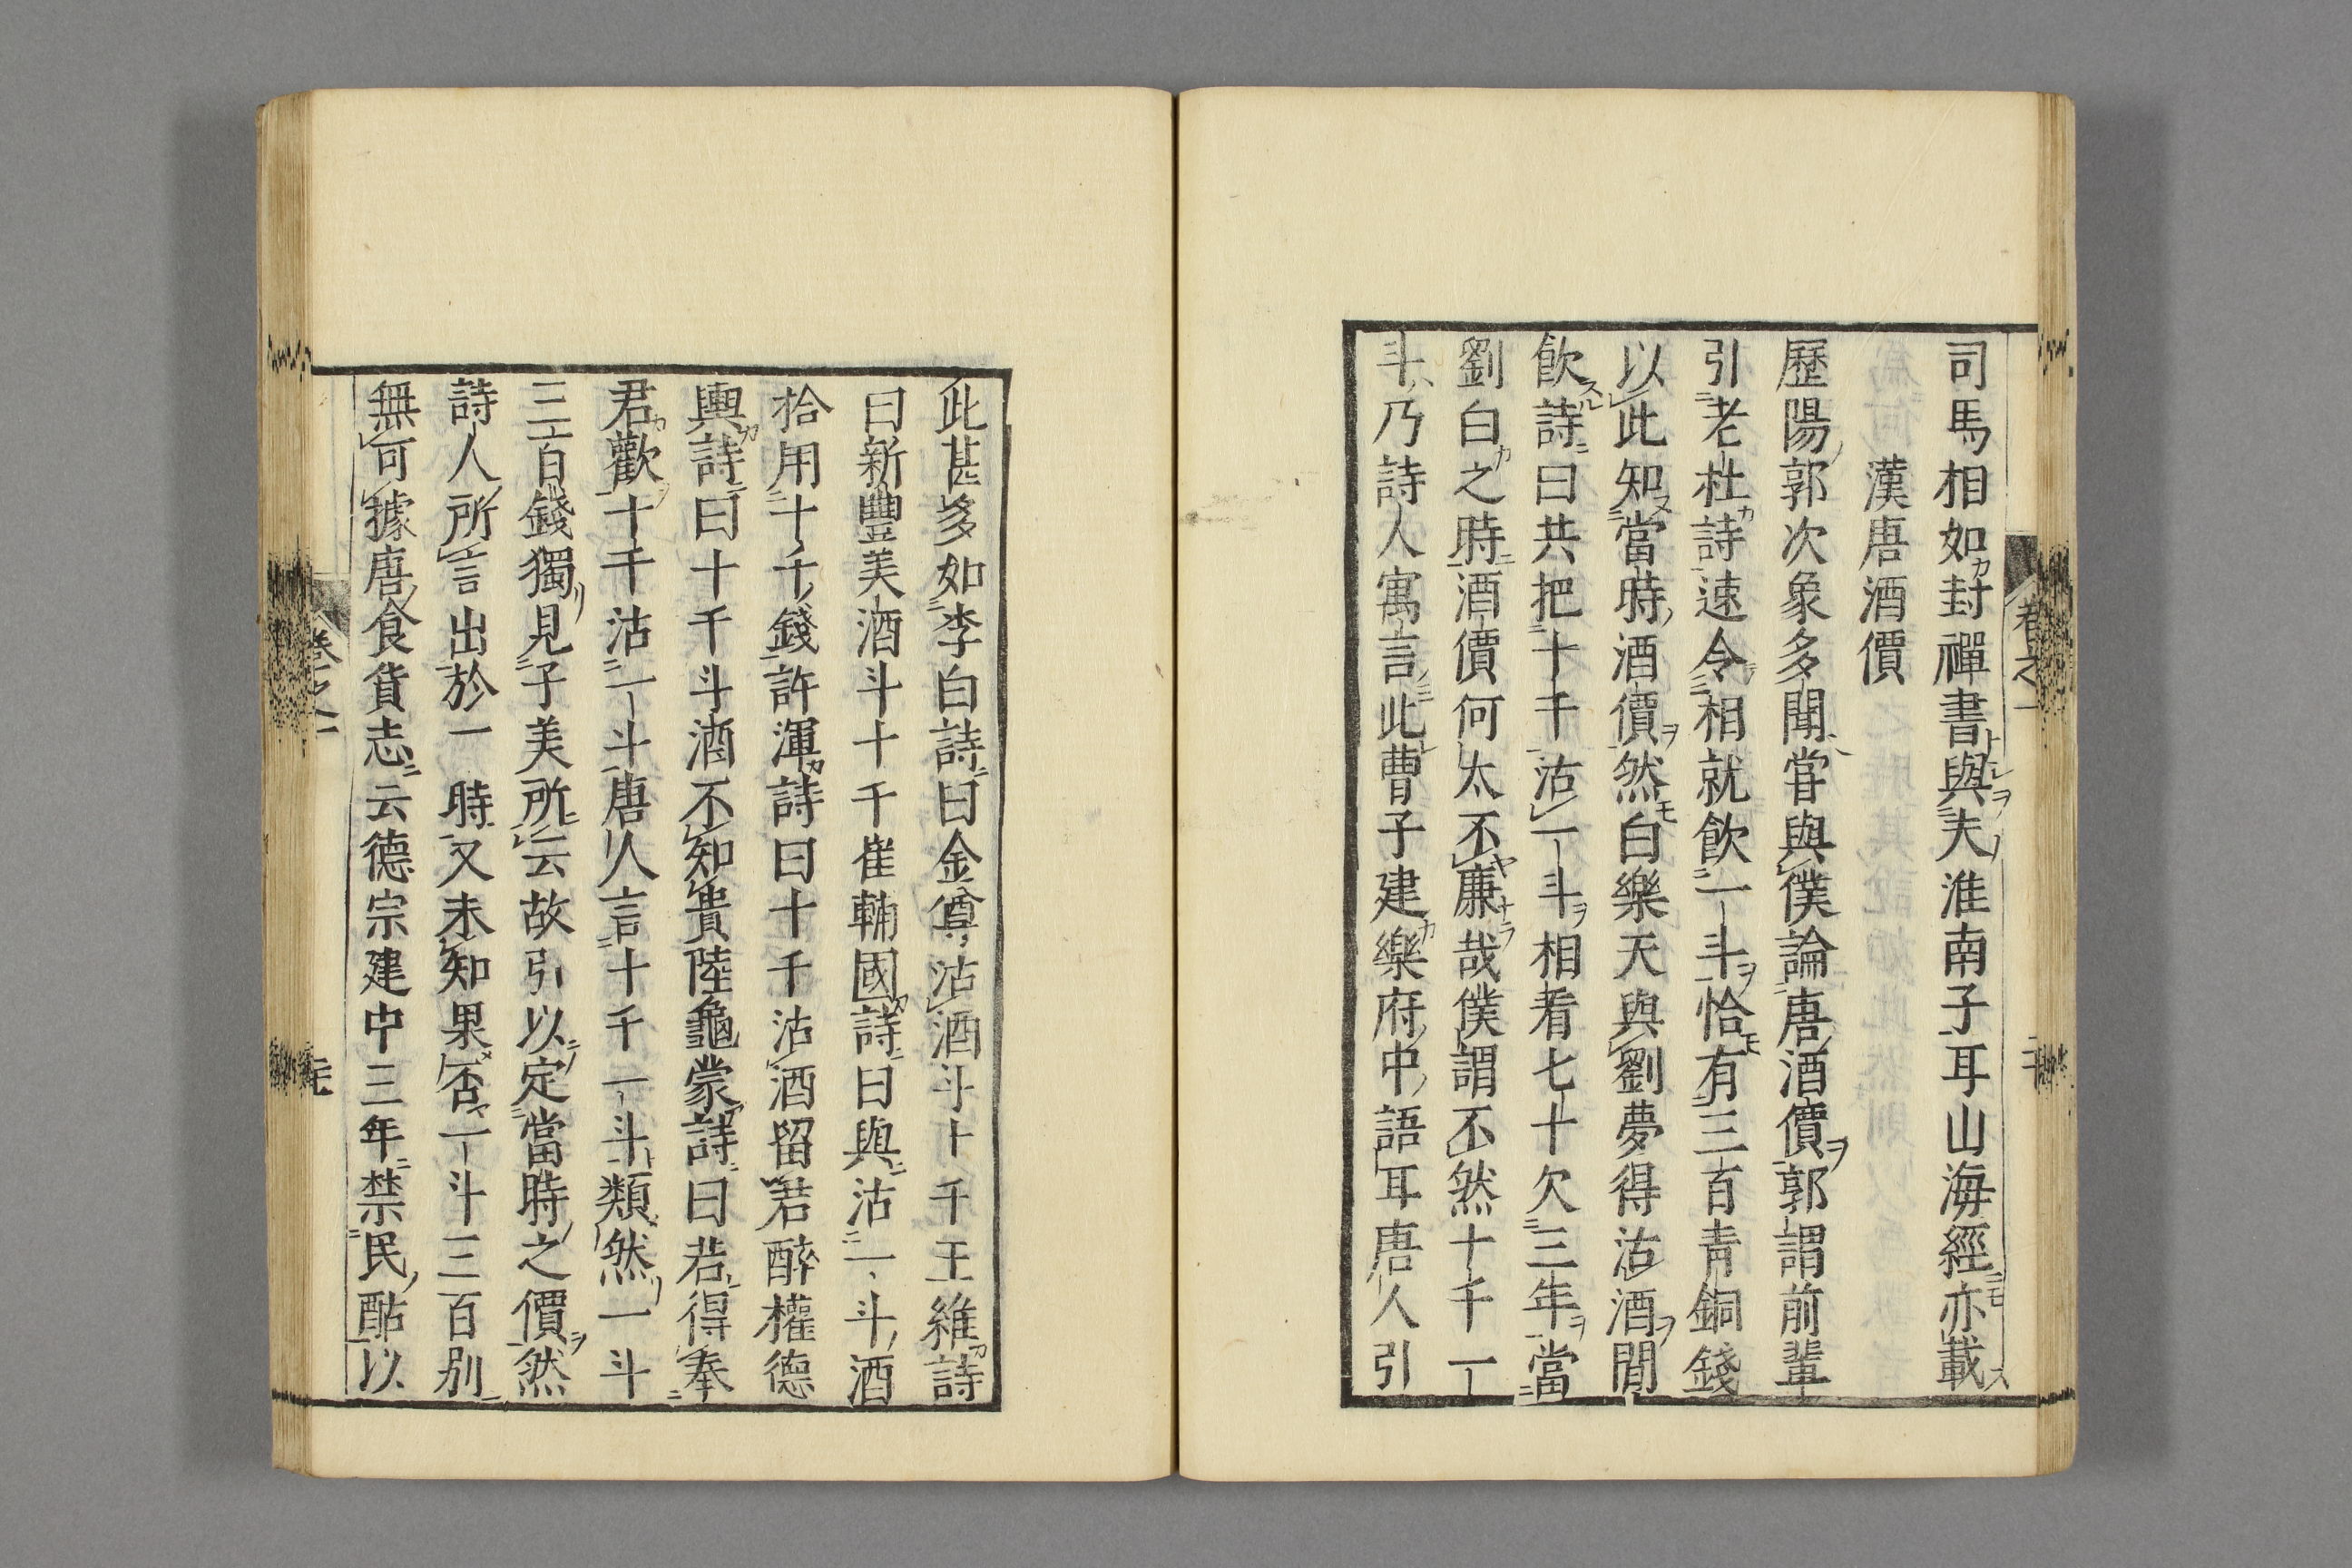 司馬相如封禪書與夫淮南子耳山海經亦載
漢唐酒價
歷陽郭次象多聞甞與僕論唐酒價郭謂前輩
引老杜詩速令相就飲一斗恰有三百青銅錢
以此知當時酒價然白樂天與劉夢得沽酒閒
飲詩曰共把十千沽一斗相看七十欠三年當
劉白之時酒價何太不廉哉僕謂不然十千一
斗乃詩人寓言此曹子建樂府中語耳唐人引
此甚多如李白詩曰金尊沽酒斗十千王維詩
曰新豐美酒斗十千崔輔國詩曰與沽一斗酒
拾用十千錢許渾詩曰十千沽酒留君醉權德
輿詩曰十千斗酒不知貴陸龜蒙詩曰若得奉
君歡十千沽一斗唐人言十千一斗類然一斗
三百錢獨見子美所云故引以定當時之價然
詩人所言出於一時又未知果否一斗三百别
無可據唐食貨志云德宗建中三年禁民酤以
卷之一